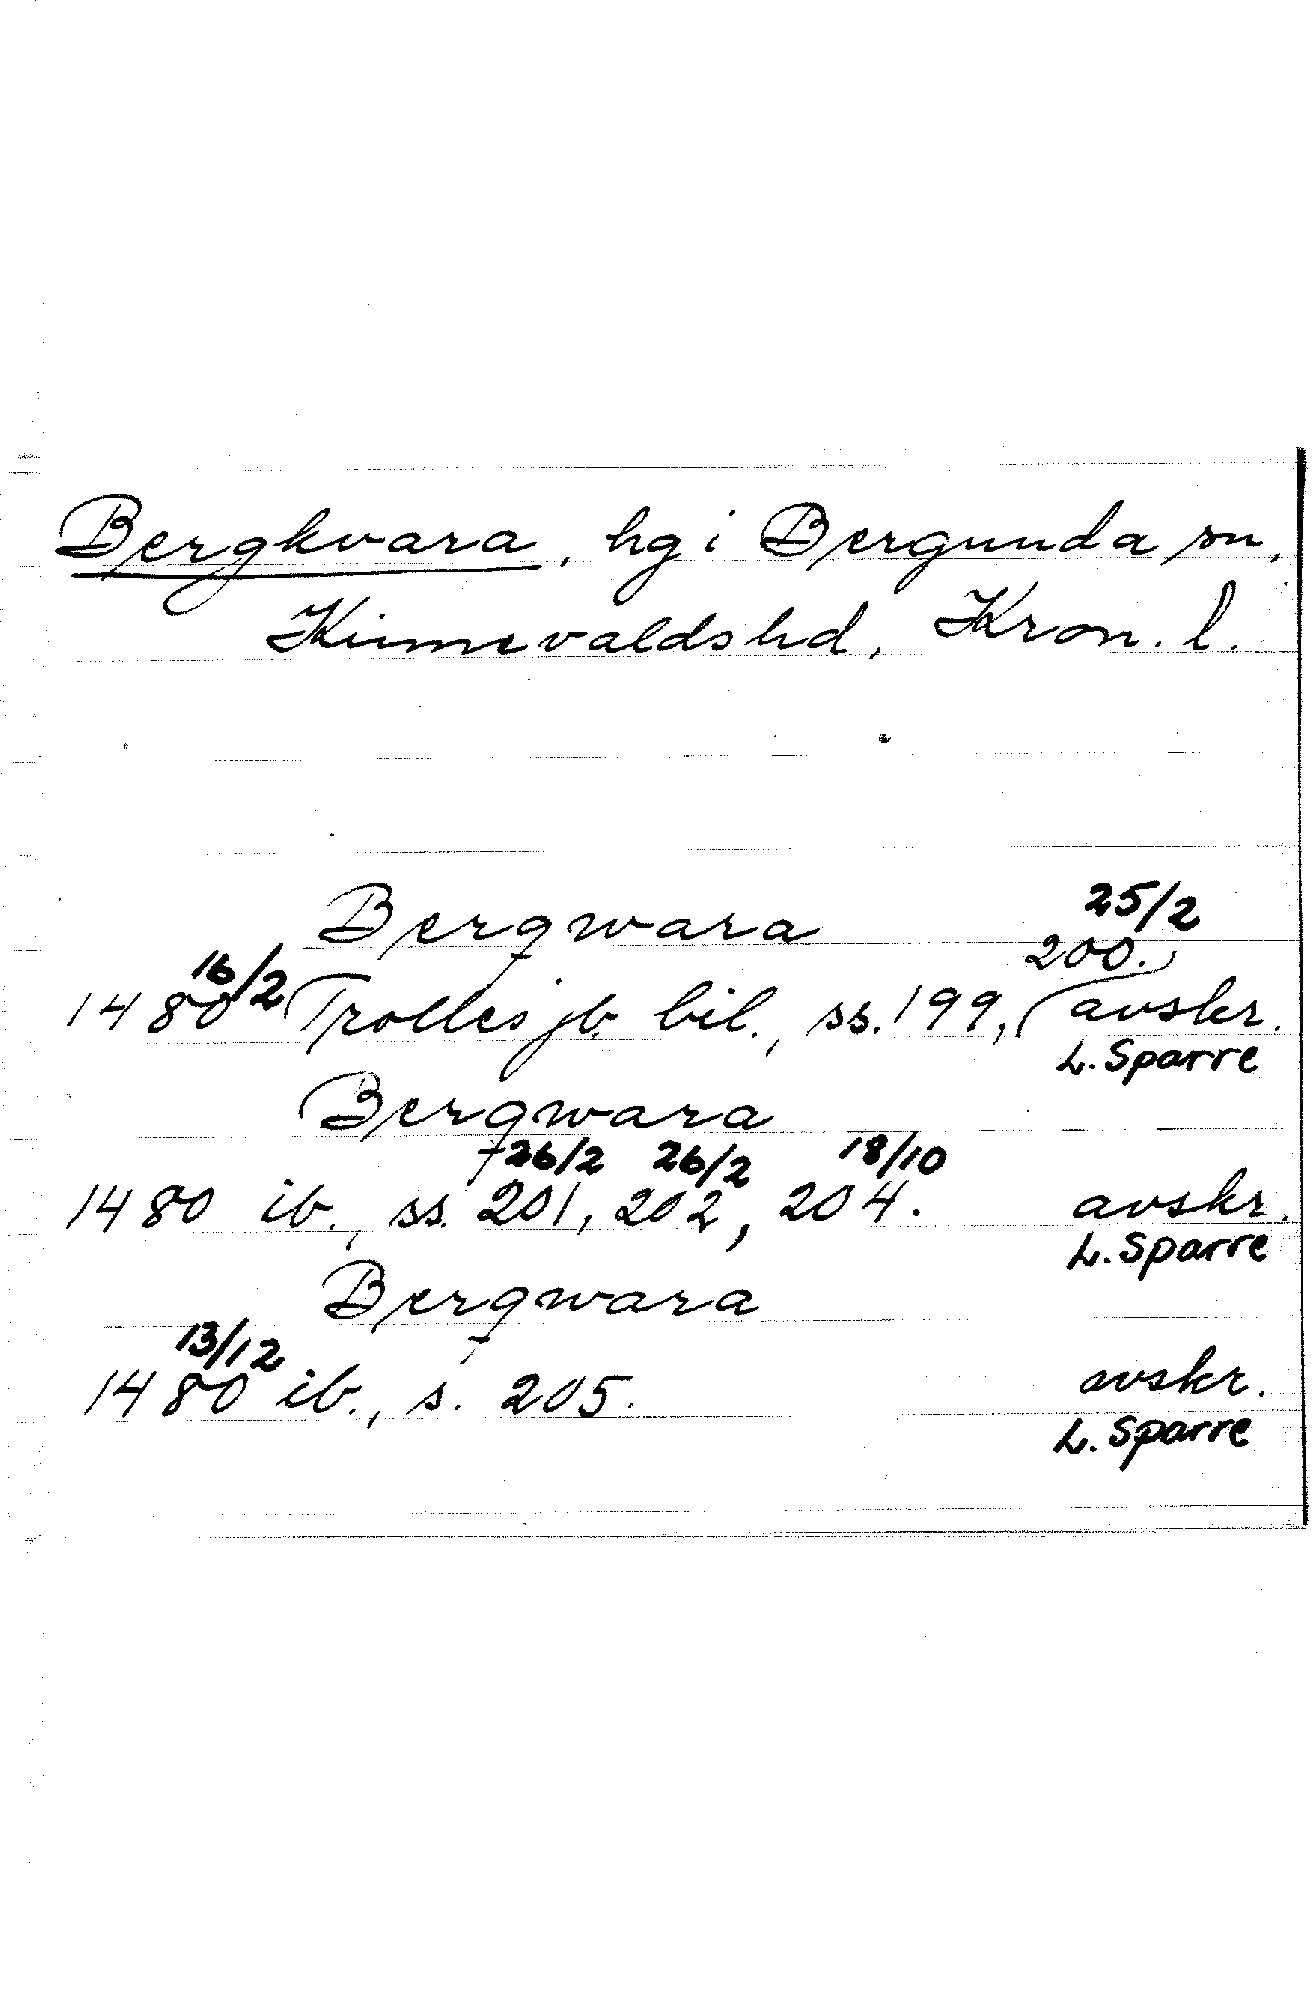 Bergkvara, hg i Bergunda sn,
Kinnevaldshd, Kron. l.
Bergwara 25/2
16/2 200.
1480 Trolles jb. bil., ss. 199, avskr.
L. Sparre
Bergwara
26/2 26/2 18/10
1480 ib., ss. 201, 202, 204. avskr.
L. Sparre
Bergwara
13/12
1480 ib., s. 205. avskr.
L. Sparre